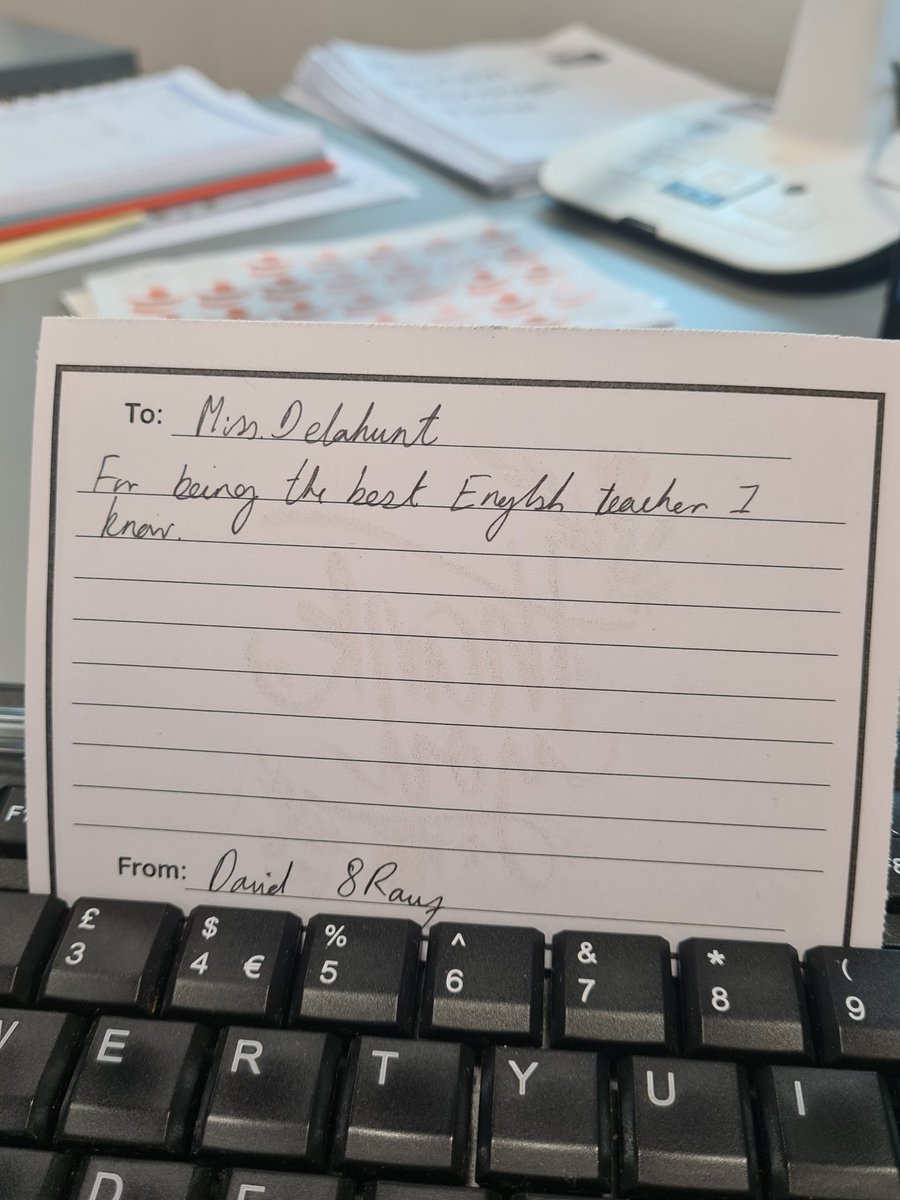 To: Miss. Delahunt
For being the best English teacher I
know.
From: David 8Rany
£ $ % ^ & * (
3 4 € 5 6 7 8 9
W E R T Y U I
D F